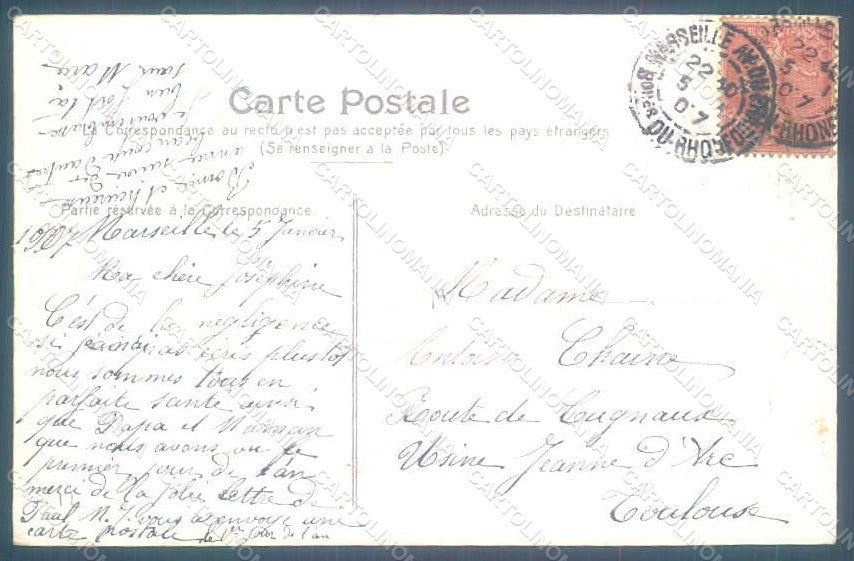 Carte Postale
La Correspondance au recto n'est pas acceptée par tous les pays étrangers
(Se renseigner à la Poste)
Partie réservée à la Correspondance
Adresse du Destinataire
MARSEILLE
22
5
07
BOUCHES DU RHONE
1907 Marseille le 5 Janvier
Ma chère Joséphine
C'est de la negligence
si jamais écris plustot
nous sommes tous en
parfaite santé ainsi
que Papa et Maman
que nous avons vu le
premier jour de l'an
merci de la Jolie lettre de
Paul N. vous a envoyé une
carte postale le 1er jour de l'an
Bonne et heureuse
année suivie de
beaucoup d'autres
bien fort ta
sœur Marie
Madame
Antoine Chaine
Route de Cugnaux
Usine Jeanne d'Arc
Toulouse
CARTOLINOMANIA